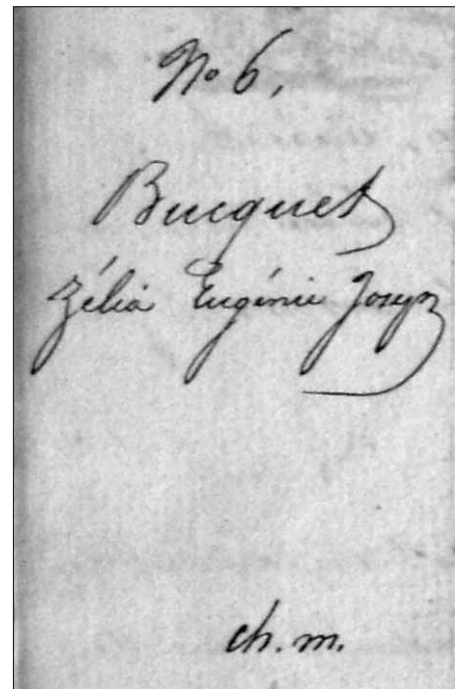 No 6.
Bucquet
Zélia Eugénie Joseph
ch. m.